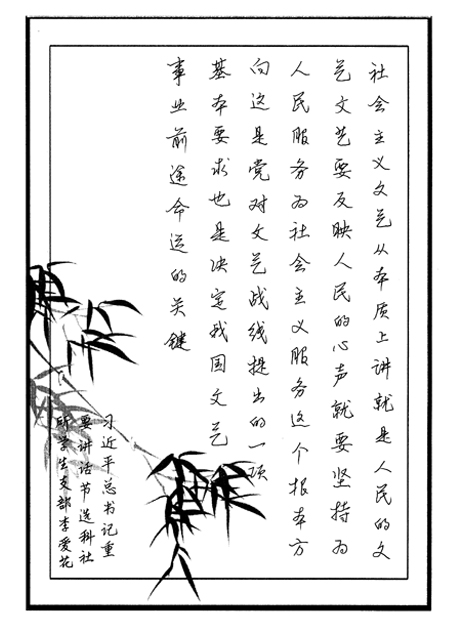 社会主义文艺从本质上讲就是人民的文
艺文艺要反映人民的心声就要坚持为
人民服务为社会主义服务这个根本方
向这是党对文艺战线提出的一项
基本要求也是决定我国文艺
事业前途命运的关键
习近平总书记重
要讲话节选科社
研学生支部李爱花